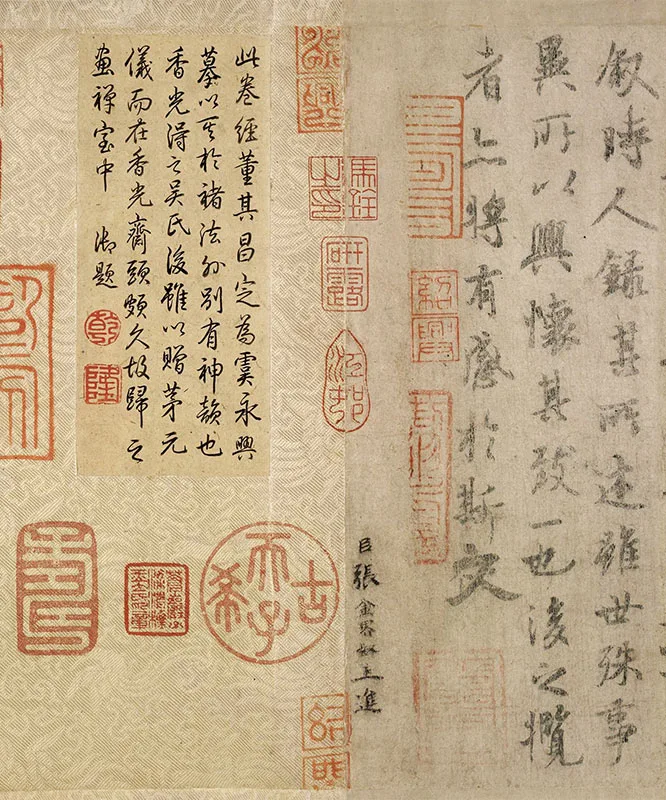 叙時人録其所述雖世殊事
異所以興懷其致一也後之攬
者亦將有感於斯文
臣張金界奴上進
紹興
研露
此卷經董其昌定為虞永興
摹以其於褚法外別有神韻也
香光得之吳氏後雖以贈茅元
儀而在香光齋頭頗久故歸之
畫禪室中 御題
乾
隆
古希天子